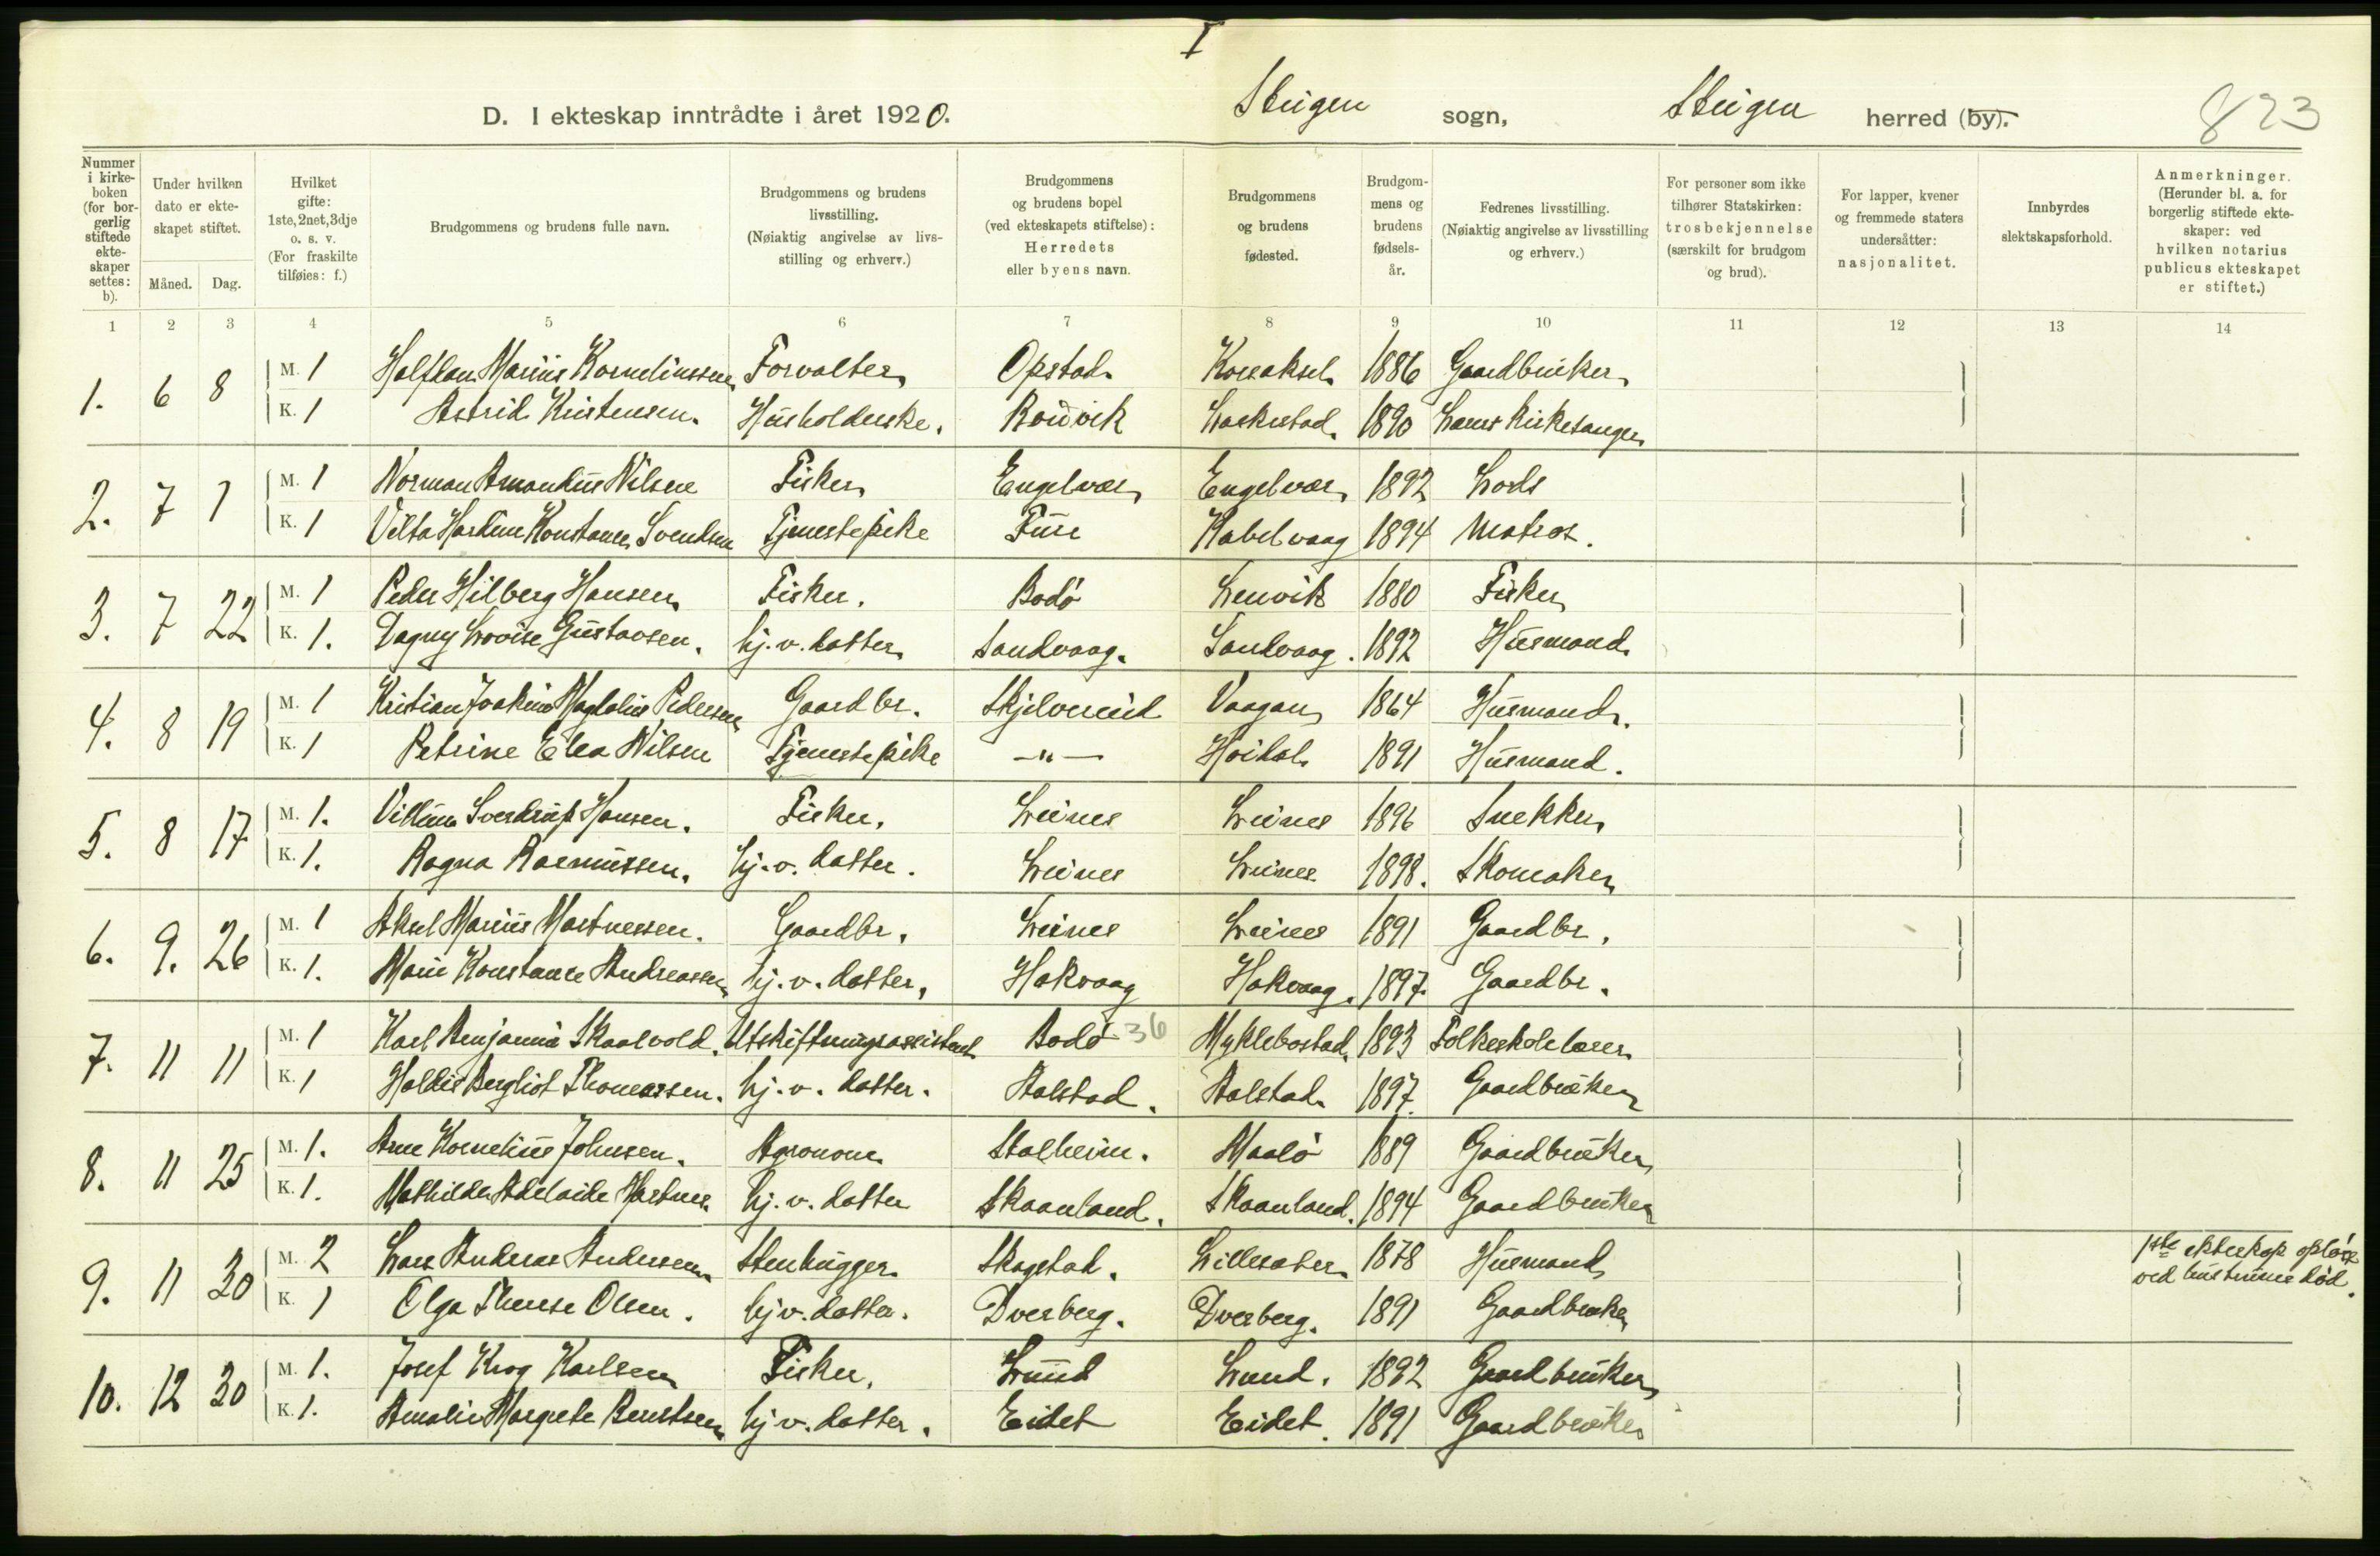 I
D. I ekteskap inntrådte i året 1920. Steigen sogn, Steigen herred (by). 823
Nummer i kirkeboken (for borgerlig stiftede ekteskaper settes: b).
Under hvilken dato er ekteskapet stiftet.
Måned. Dag.
Hvilket gifte: 1ste, 2net, 3dje o. s. v. (For fraskilte tilføies: f.)
Brudgommens og brudens fulle navn.
Brudgommens og brudens livsstilling. (Nøiaktig angivelse av livsstilling og erhverv.)
Brudgommens og brudens bopel (ved ekteskapets stiftelse): Herredets eller byens navn.
Brudgommens og brudens fødested.
Brudgommens og brudens fødselsår.
Fedrenes livsstilling. (Nøiaktig angivelse av livsstilling og erhverv.)
For personer som ikke tilhører Statskirken: trosbekjennelse (særskilt for brudgom og brud).
For lapper, kvener og fremmede staters undersåtter: nasjonalitet.
Innbyrdes slektskapsforhold.
Anmerkninger. (Herunder bl. a. for borgerlig stiftede ekteskaper: ved hvilken notarius publicus ekteskapet er stiftet.)
1 2 3 4 5 6 7 8 9 10 11 12 13 14
1. 6 8 M. 1 Halfdan Marius Korneliussen Forvalter Opstad 1886 Gaardbruker
K. 1 Astrid Kristensen. Husholderske. 1890 Kirkesanger
2. 7 1 M. 1 Norman Amandus Nilsen Fisker Engelvær Engelvær 1892 Lods
K. 1 Konstance Svendsen Tjenestepike Fure Kabelvaag 1894 Matros.
3. 7 22 M. 1 Peder Hilberg Hansen Fisker. Bodö Lenvik 1880 Fisker
K. 1. Dagny Lovise Gustavsen. hj. v. datter Sandvaag. Sandvaag. 1892 Husmand
4. 8 19 M. 1 Kristian Joakim Pedersen Gaardbr. Skjelvereid Vaagan 1864 Husmand.
K. 1 Petrine Elea Nilsen Tjenestepike —"— Hoidal 1891 Husmand.
5. 8 17 M. 1. Sverdrup Hansen. Fisker. Leines Leines 1896 Snekker
K. 1. Ragna Rasmussen. hj. v. datter. Leines Leines 1898. Skomaker
6. 9. 26 M. 1 Aksel Marius Martnessen. Gaardbr. Leines Leines 1891 Gaardbr.
K. 1. Marie Konstance Andreassen hj. v. datter. Hakvaag Hakvaag. 1897. Gaardbr.
7. 11 11 M. 1 Karl Benjamin Skaalvold. Utskiftningsassistent Bodö 36 Myklebostad. 1893 Folkeskolelærer
K. 1 Haldis Bergliot Thomassen. hj. v. datter. Aalstad. Aalstad 1897. Gaardbruker
8. 11 25 M. 1. Arne Kornelius Johnsen. Agronom Stalheim. Maalö 1889 Gaardbruker
K. 1. Mathilde Adelaide Martnes. hj. v. datter Skaanland. Skaanland. 1894 Gaardbruker
9. 11 30 M. 2 Lars Andreas Andersen Stenhugger Skagstad. 1878 Husmand 1ste ekteskap oplöst
K. 1 Olga Therese Olsen. hj v. datter. Dverberg. Dverberg. 1891 Gaardbruker ved hustruens död.
10. 12 30 M. 1. Josef Krog Karlsen Fisker. Lund Lund. 1892 Gaardbruker
K. 1. Amalie Margrete Berntsen hj v. datter. Eidet Eidet. 1891 Gaardbruker